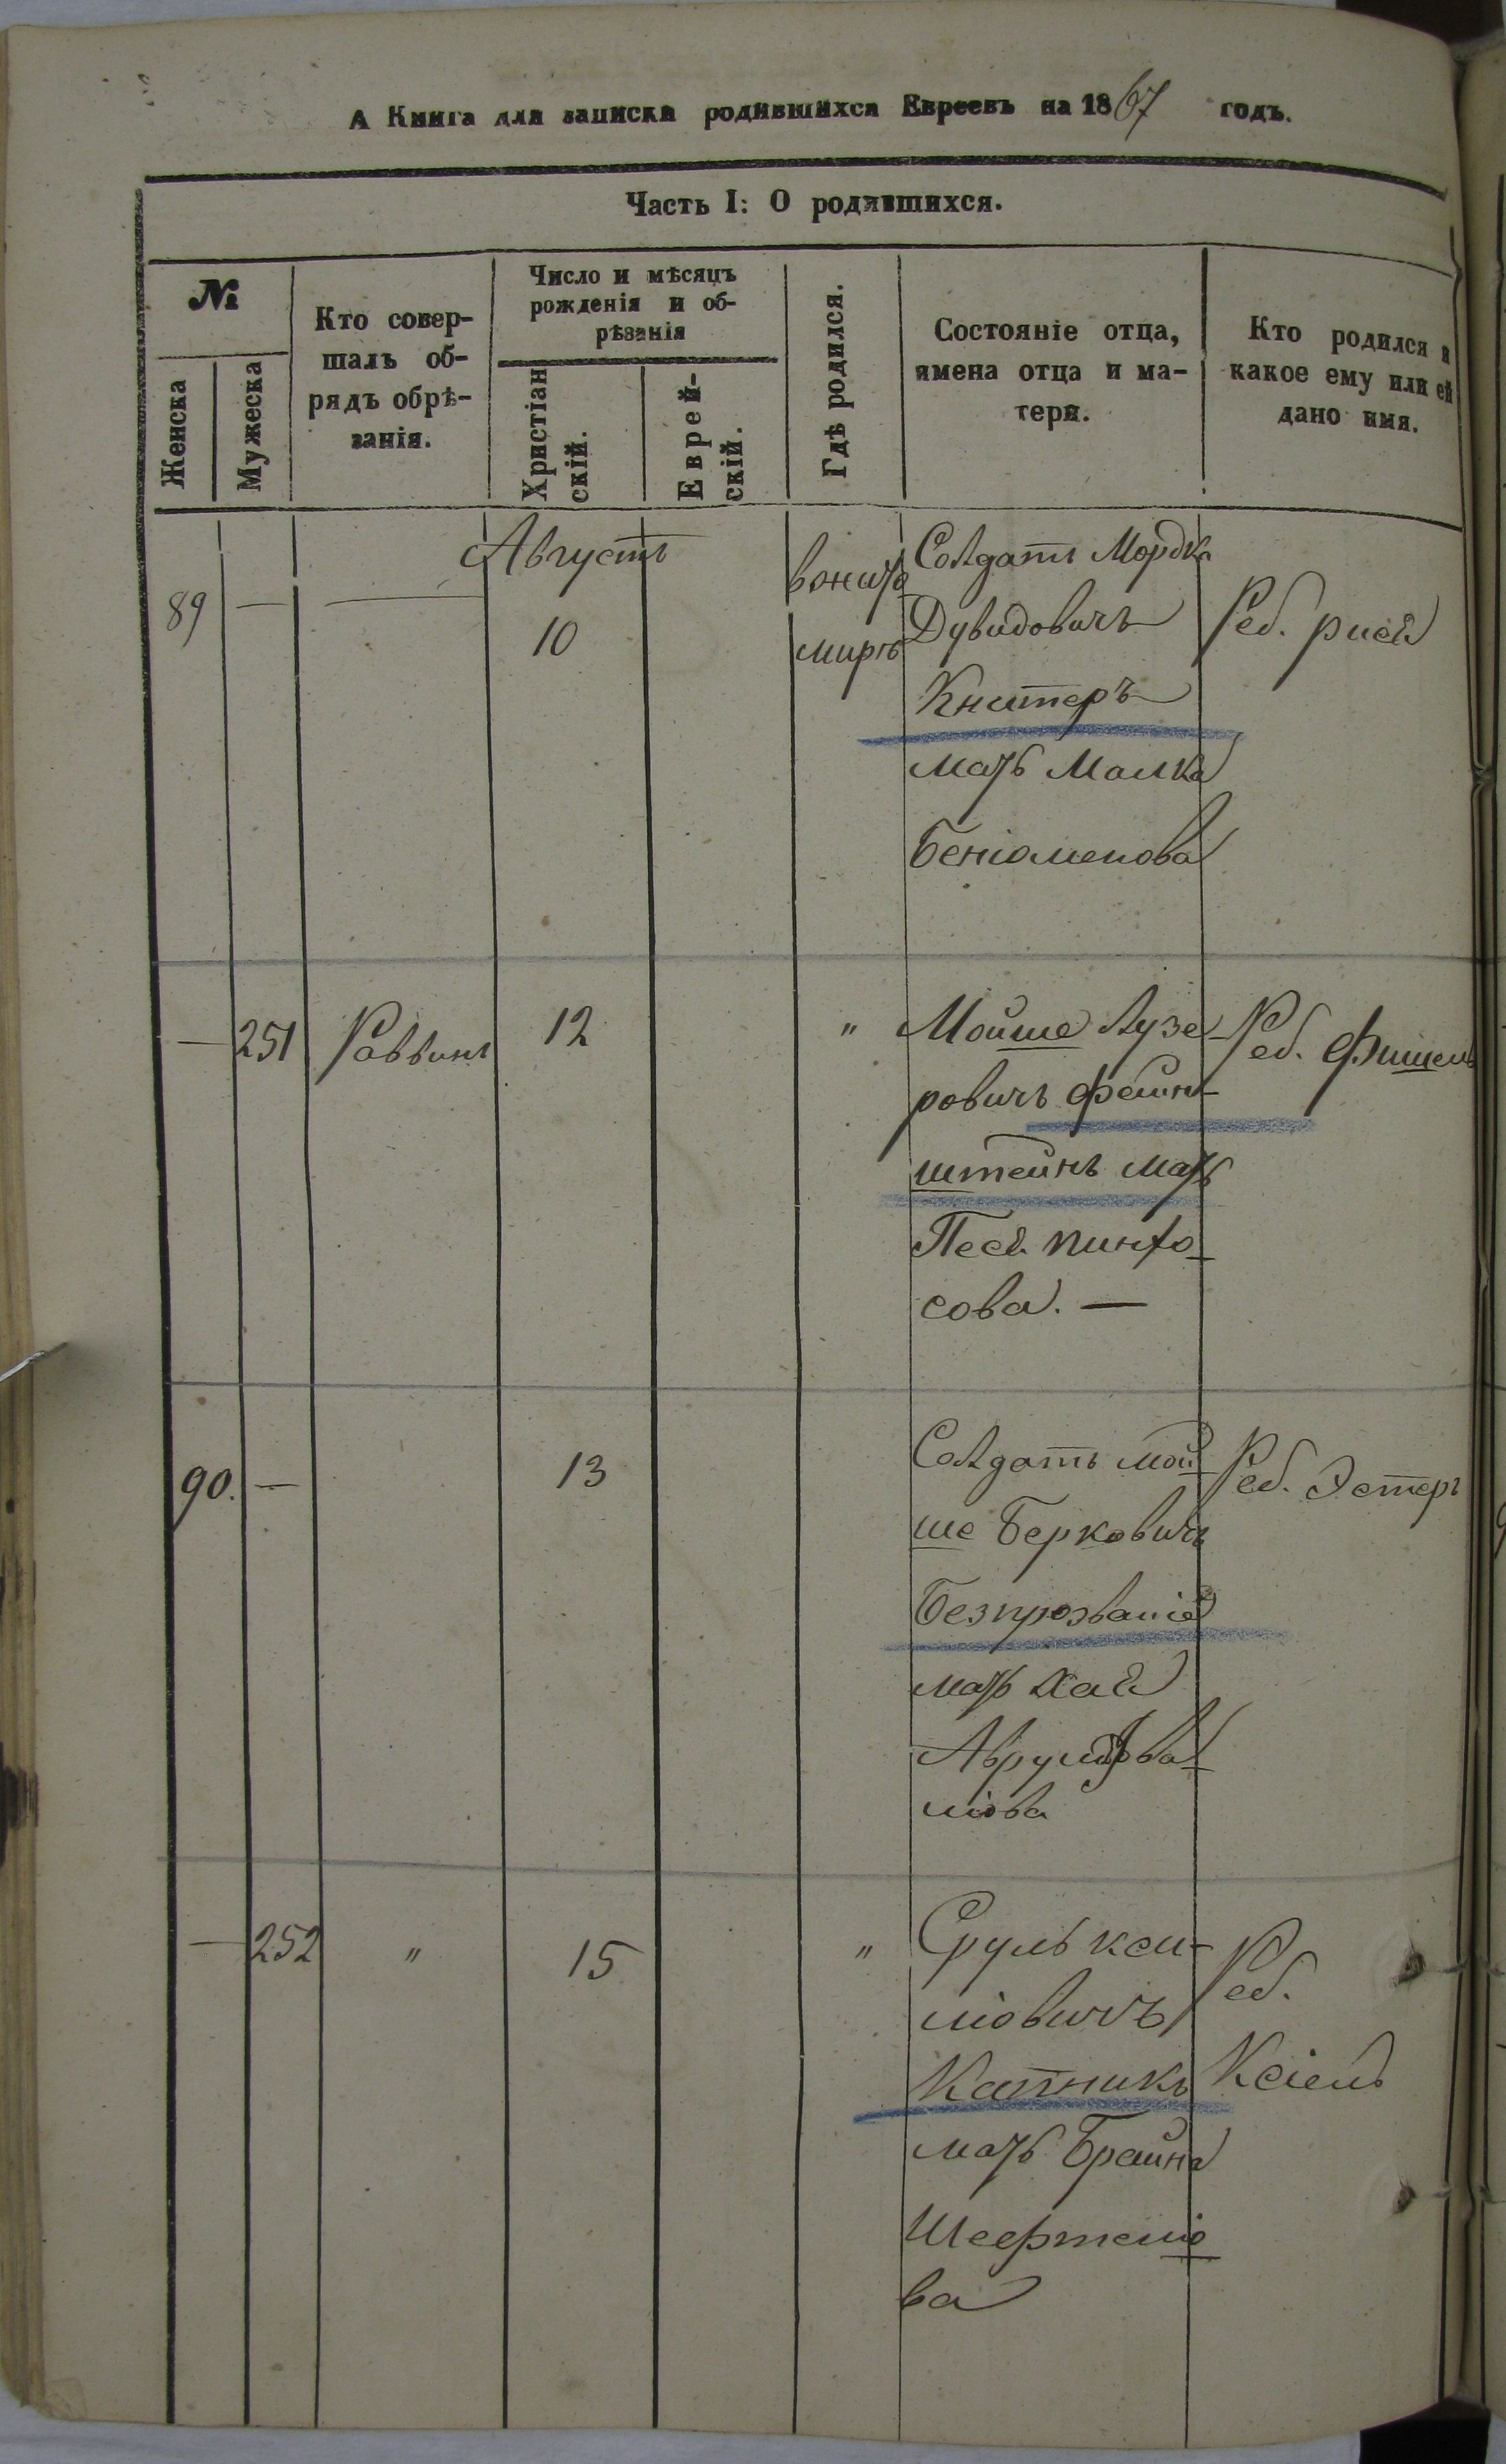 А Книга для записки родившихся Евреевъ на 1867 годъ.
Часть I: О родившихся.
№
Женска
Мужеска
Кто совер-
шалъ об-
рядъ обрѣ-
занія.
Число и мѣсяцъ
рожденія и об-
рѣзанія
Христіан
скій.
Еврей-
скій.
Гдѣ родился.
Состояніе отца,
имена отца и ма-
тери.
Кто родился и
какое ему или ей
дано имя.
Августъ
89 — — 10
вжито
миръ
Солдатъ Мордка
Дувидовичъ
Книтеръ
мать Малка
Беніоменова
Реб. рися
— 251 Раввинъ 12 "
Мойше Лузе-
ровичъ фейн-
штейнъ мать
Песя пинхо-
сова. —
Реб. фишель
90. — 13
Солдатъ мой-
ше Берковичъ
Безпрозваніе
мать Хая
Аврум
Реб. Эстеръ
— 252 " 15 "
Сруль ксі-
ліовичъ
Катникъ
мать Брайна
Шефтеліо
ва
Реб.
Ксіель